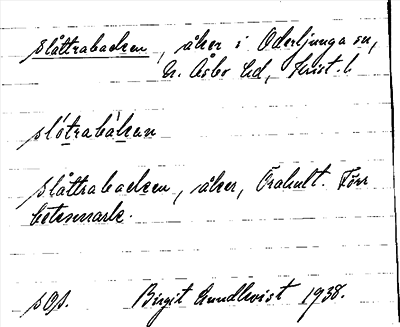 Slåttrabacken, åker i Oderljunga sn,
N. Åsbo hd, Krist. l.
sló̱trabàkan
Slåttrabacken, åker, Örahult. Förr
betesmark.
sOp. Birgit Lundkvist 1938.